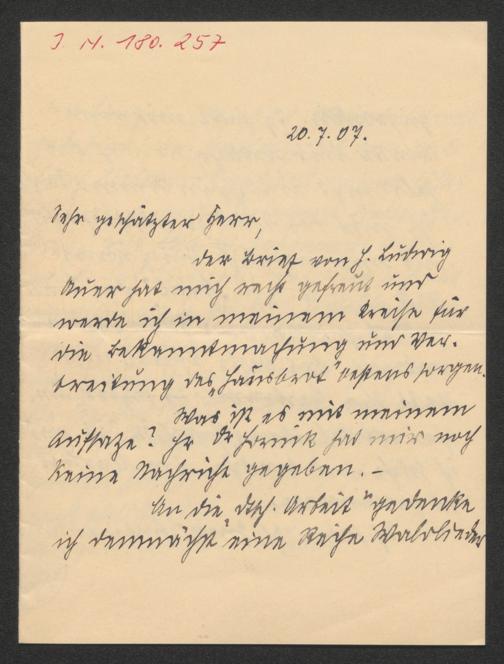 J. N. 180.257
20.7.07.
Sehr geschätzter Herr,
der Brief von H. Ludwig
Auer hat mich recht gefreut und
werde ich in meinem Kreise für
die Bekanntmachung und Ver-
breitung des „Hausbrot" bestens sorgen.
Was ist es mit meinem
Aufsatze? Hr Dr Hornik hat mir noch
keine Nachricht gegeben. –
An die „dtsch. Arbeit" gedenke
ich demnächst eine Reihe Waldlieder